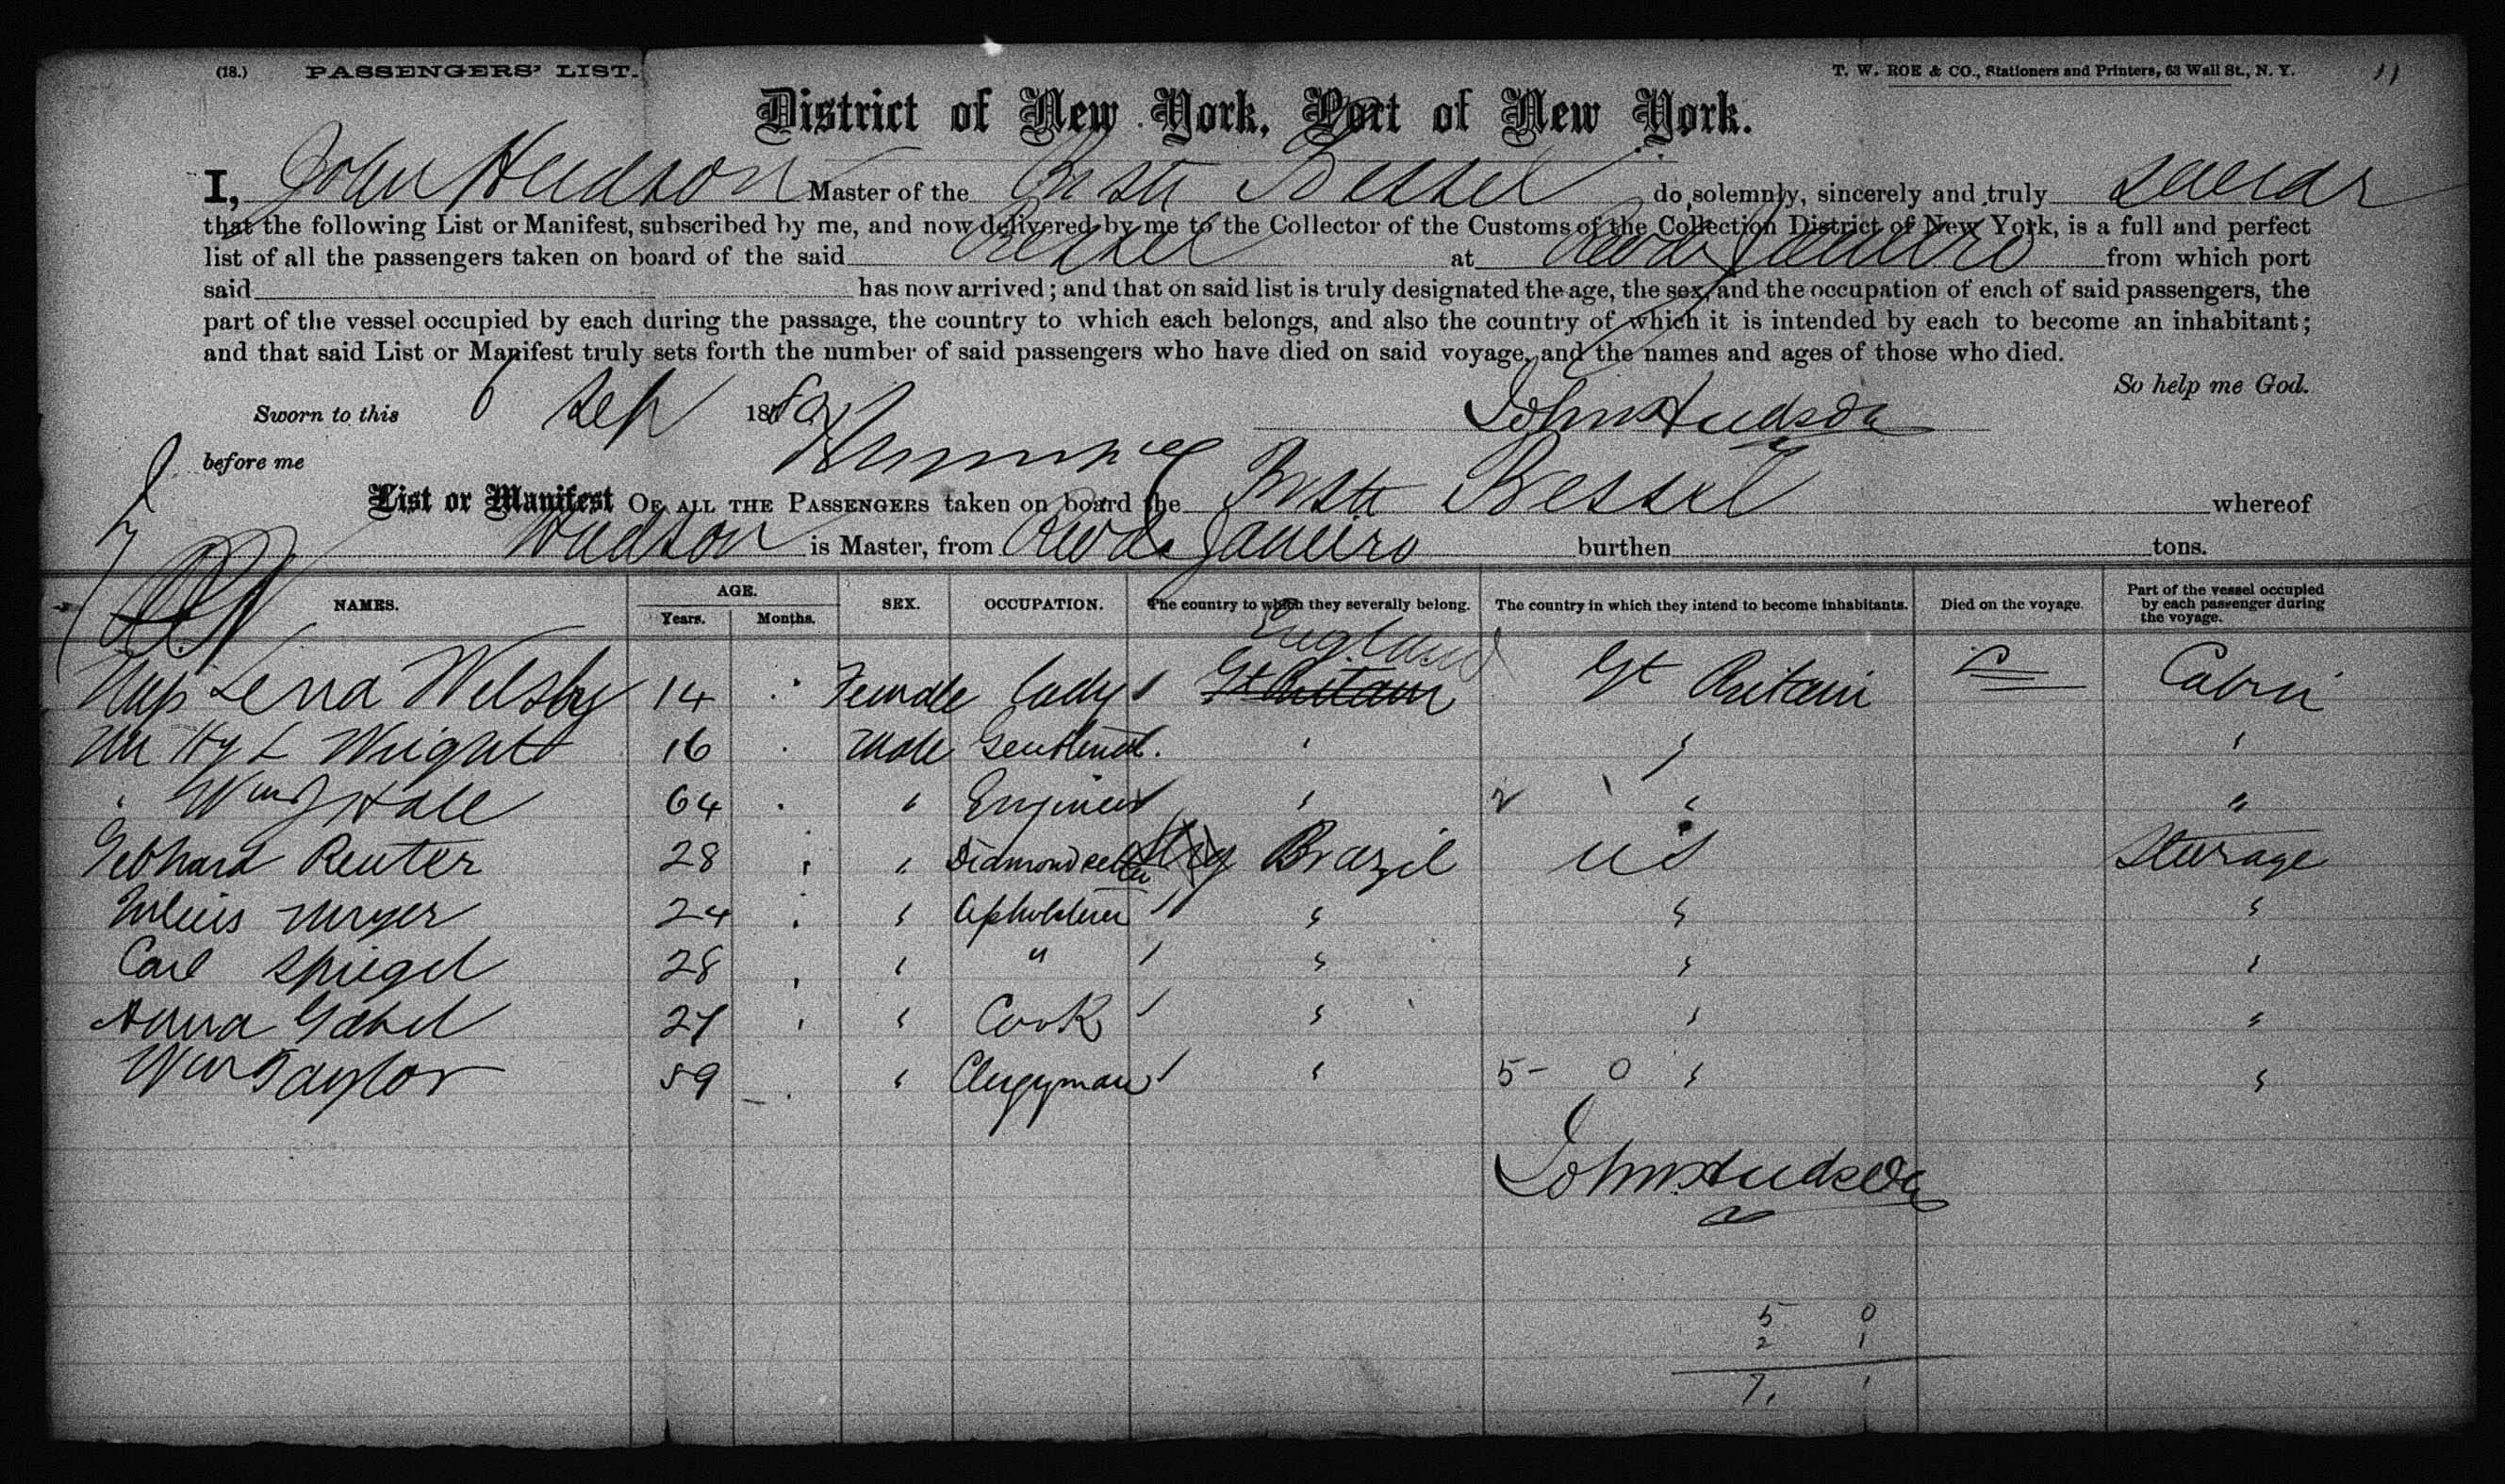 (18.) PASSENGERS' LIST. T. W. ROE & CO., Stationers and Printers, 63 Wall St., N. Y. 11
District of New York, Port of New York.
I, John Hudson Master of the Br Str Bessel do solemnly, sincerely and truly swear
that the following List or Manifest, subscribed by me, and now delivered by me to the Collector of the Customs of the Collection District of New York, is a full and perfect
list of all the passengers taken on board of the said Bessel at Rio de Janeiro from which port
said has now arrived; and that on said list is truly designated the age, the sex, and the occupation of each of said passengers, the
part of the vessel occupied by each during the passage, the country to which each belongs, and also the country of which it is intended by each to become an inhabitant;
and that said List or Manifest truly sets forth the number of said passengers who have died on said voyage, and the names and ages of those who died.
So help me God.
Sworn to this 6 Sep 1880 John Hudson
before me
List or Manifest OF ALL THE PASSENGERS taken on board the Br Str Bessel whereof
Hudson is Master, from Rio de Janeiro burthen tons.
NAMES. AGE. Years. Months. SEX. OCCUPATION. The country to which they severally belong. The country in which they intend to become inhabitants. Died on the voyage. Part of the vessel occupied by each passenger during the voyage.
England
Miss Lena Welsby 14 Female Lady Gt Britain Gt Britain Cabin
Mr Hy L Wright 16 Male Gentleman " " "
" Wm J Hall 64 " Engineer " 2 1 " "
Gebhard Reuter 28 " Diamond cutter Brazil US Steerage
Julius Meyer 24 " Upholsterer " " "
Carl Spiegel 28 " " " " "
Anna Gabel 27 " Cook " " "
Wm Taylor 59 " Clergyman " 5 - 0 " "
John Hudson
5 0
2 1
7. 1